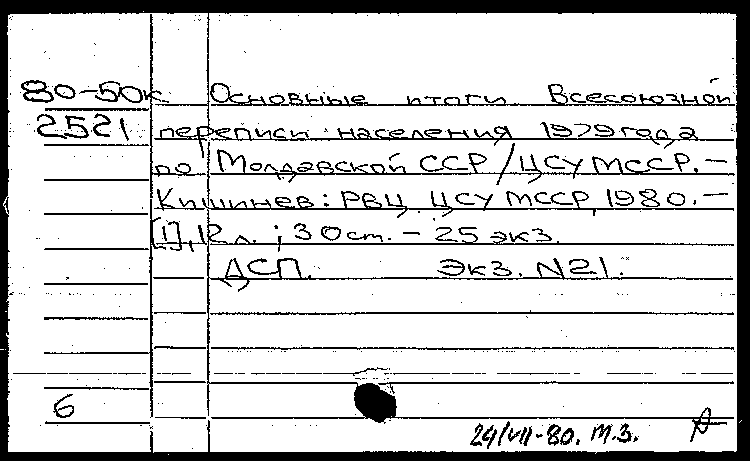 80-50к Основные итоги Всесоюзной
2521 переписи населения 1979 года
по Молдавской ССР/ЦСУ МССР. –
Кишинев: РВЦ ЦСУ МССР, 1980. –
[1], 12 л. ; 30 ст. – 25 экз.
ДСП. Экз. N21.
6
24/VII-80. М.З.